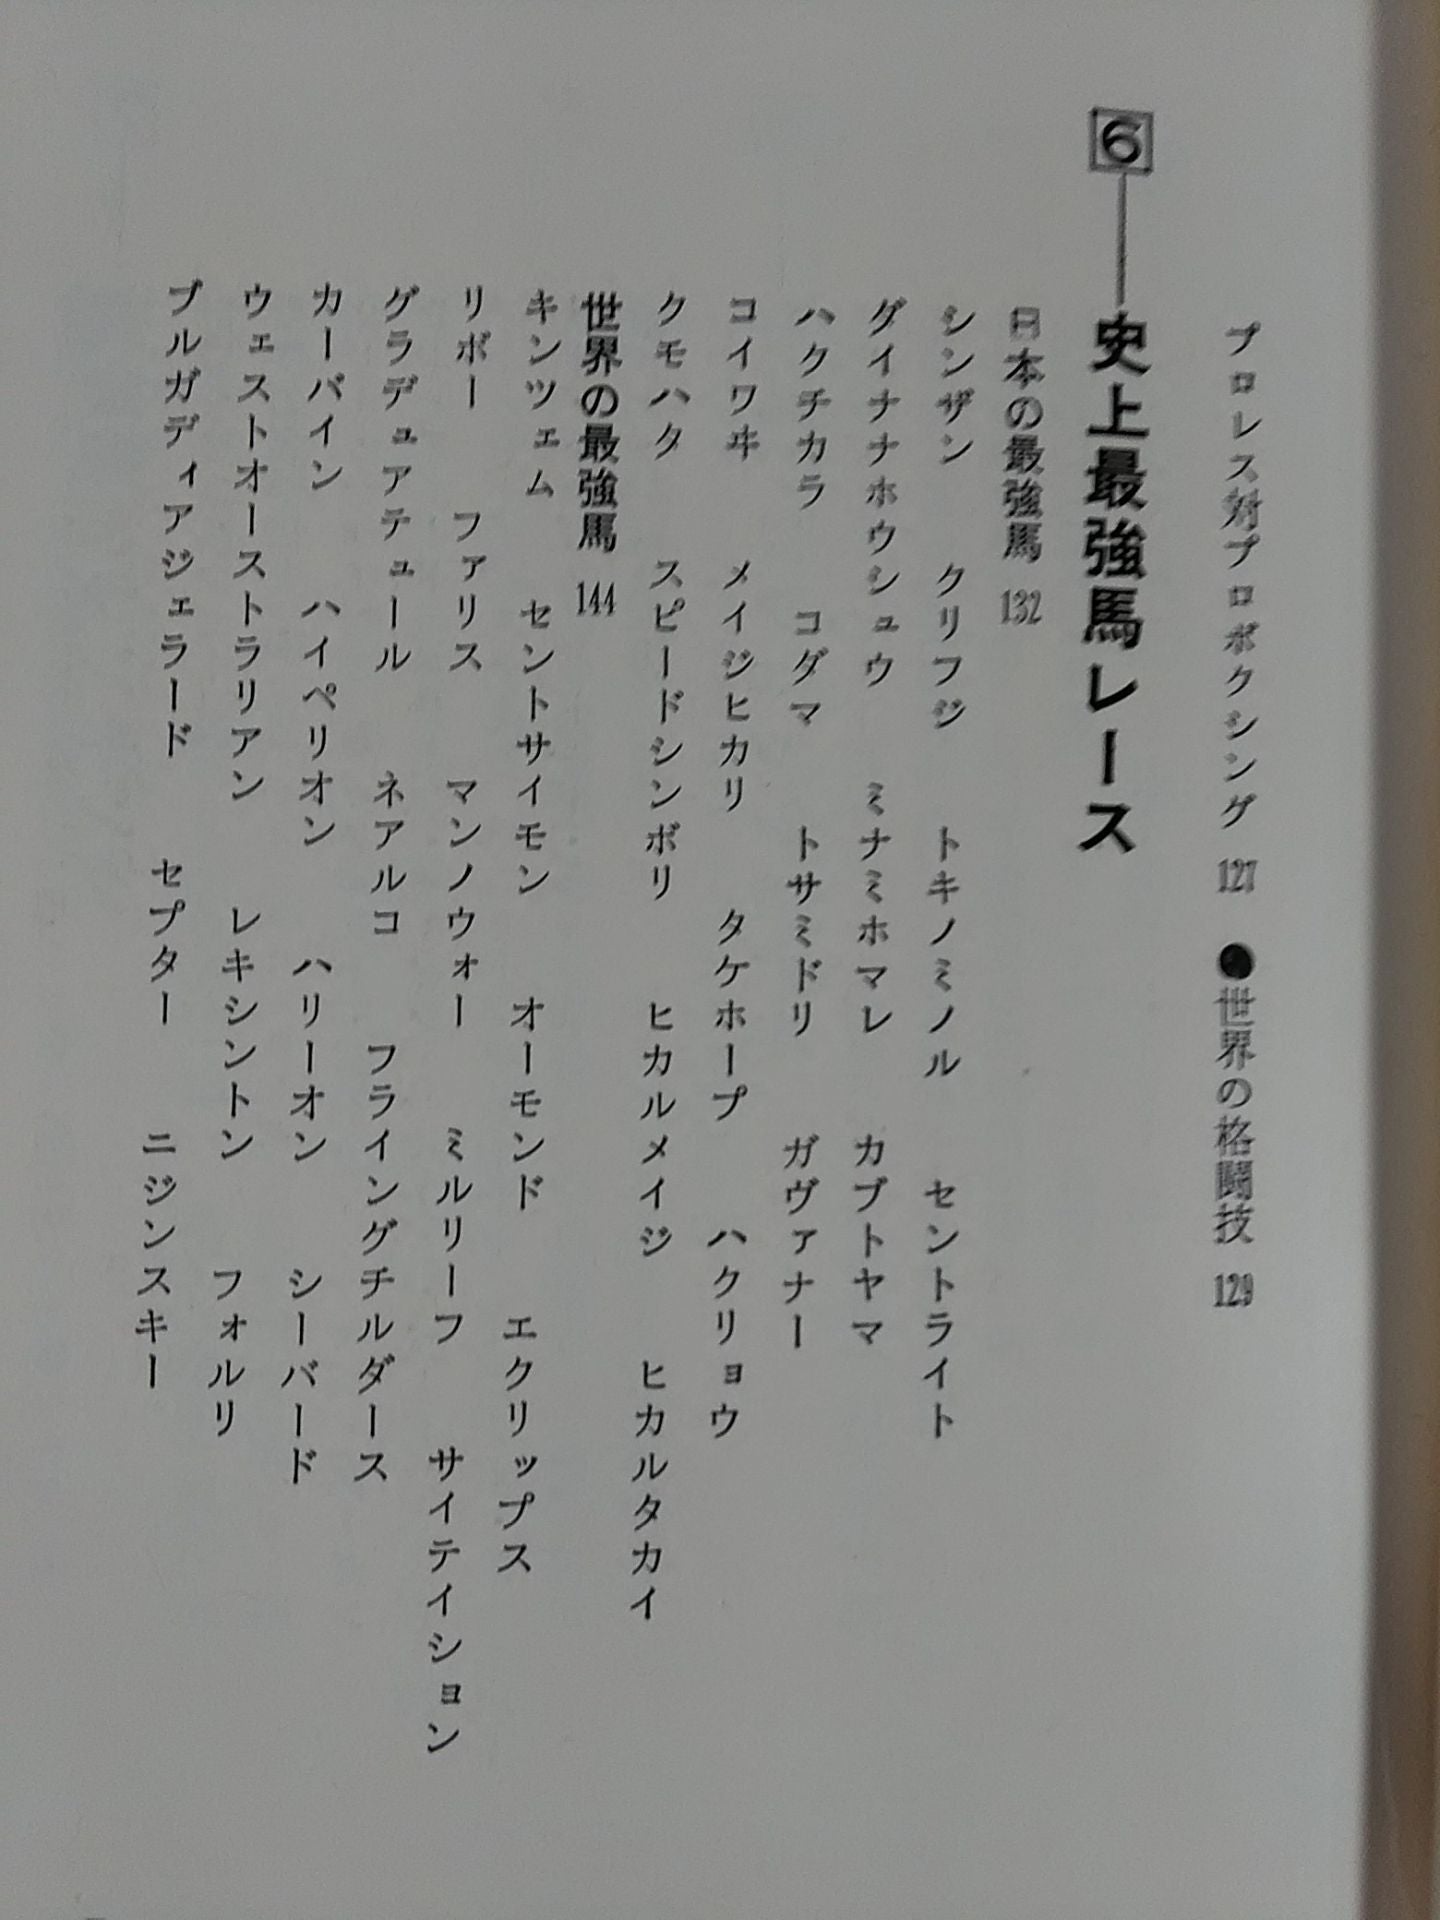 プロレス対プロボクシング 127 ●世界の格闘技 129
6―史上最強馬レース
日本の最強馬 132
シンザン クリフジ トキノミノル セントライト
ダイナナホウシュウ ミナミホマレ カブトヤマ
ハクチカラ コダマ トサミドリ ガヴァナー
コイワヰ メイジヒカリ タケホープ ハクリョウ
クモハタ スピードシンボリ ヒカルメイジ ヒカルタカイ
世界の最強馬 144
キンツェム セントサイモン オーモンド エクリップス
リボー ファリス マンノウォー ミルリーフ サイテイション
グラデュアテュール ネアルコ フライングチルダース
カーバイン ハイペリオン ハリーオン シーバード
ウェストオーストラリアン レキシントン フォルリ
ブルガディアジェラード セプター ニジンスキー